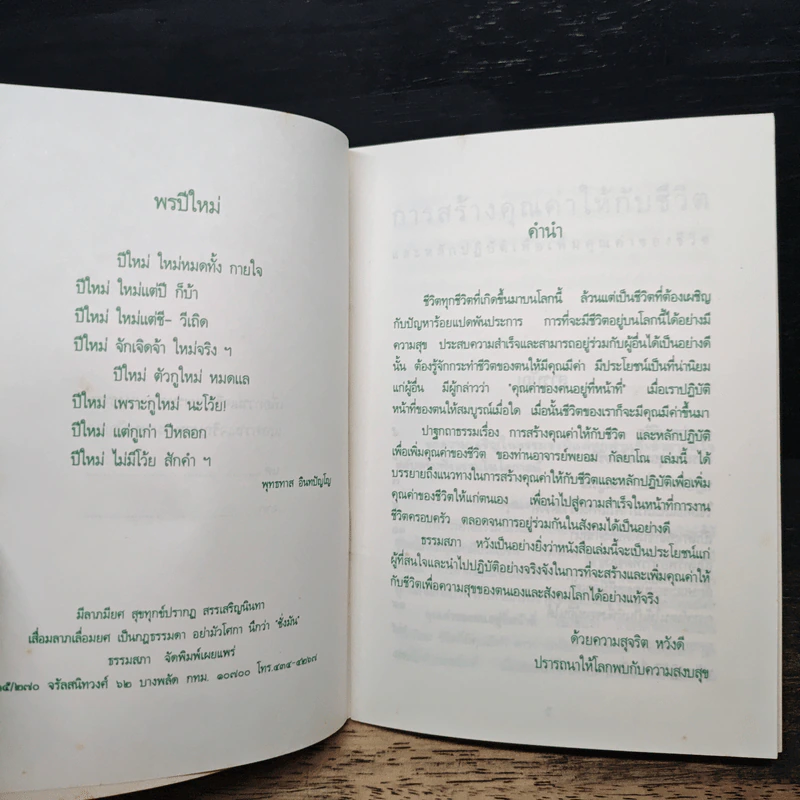 พรปีใหม่
ปีใหม่ ใหม่หมดทั้ง กายใจ
ปีใหม่ ใหม่แต่ปี ก็บ้า
ปีใหม่ ใหม่แต่ชี- วีเถิด
ปีใหม่ จักเจิดจ้า ใหม่จริง ฯ
ปีใหม่ ตัวกูใหม่ หมดแล
ปีใหม่ เพราะกูใหม่ นะโว้ย
ปีใหม่ แต่กูเก่า ปีหลอก
ปีใหม่ ไม่มีโว้ย สักคำ ฯ
พุทธทาส อินทปัญโญ
มีลาภมียศ สุขทุกข์ปรากฏ สรรเสริญนินทา
เสื่อมลาภเสื่อมยศ เป็นกฎธรรมดา อย่ามัวโศกา นึกว่า "ชั่งมัน"
ธรรมสภา จัดพิมพ์เผยแพร่
๕/๒๗๐ จรัลสนิทวงศ์ ๖๒ บางพลัด กทม. ๑๐๗๐๐ โทร.๔๓๔-๔๒๖๗
คำนำ
ชีวิตทุกชีวิตที่เกิดขึ้นมาบนโลกนี้ ล้วนแต่เป็นชีวิตที่ต้องเผชิญ
กับปัญหาร้อยแปดพันประการ การที่จะมีชีวิตอยู่บนโลกนี้ได้อย่างมี
ความสุข ประสบความสำเร็จและสามารถอยู่ร่วมกับผู้อื่นได้เป็นอย่างดี
นั้น ต้องรู้จักกระทำชีวิตของตนให้มีคุณมีค่า มีประโยชน์เป็นที่น่านิยม
แก่ผู้อื่น มีผู้กล่าวว่า "คุณค่าของคนอยู่ที่หน้าที่" เมื่อเราปฏิบัติ
หน้าที่ของตนให้สมบูรณ์เมื่อใด เมื่อนั้นชีวิตของเราก็จะมีคุณมีค่าขึ้นมา
ปาฐกถาธรรมเรื่อง การสร้างคุณค่าให้กับชีวิต และหลักปฏิบัติ
เพื่อเพิ่มคุณค่าของชีวิต ของท่านอาจารย์พยอม กัลยาโณ เล่มนี้ ได้
บรรยายถึงแนวทางในการสร้างคุณค่าให้กับชีวิตและหลักปฏิบัติเพื่อเพิ่ม
คุณค่าของชีวิตให้แก่ตนเอง เพื่อนำไปสู่ความสำเร็จในหน้าที่การงาน
ชีวิตครอบครัว ตลอดจนการอยู่ร่วมกันในสังคมได้เป็นอย่างดี
ธรรมสภา หวังเป็นอย่างยิ่งว่าหนังสือเล่มนี้จะเป็นประโยชน์แก่
ผู้ที่สนใจและนำไปปฏิบัติอย่างจริงจังในการที่จะสร้างและเพิ่มคุณค่าให้
กับชีวิตเพื่อความสุขของตนเองและสังคมโลกได้อย่างแท้จริง
ด้วยความสุจริต หวังดี
ปรารถนาให้โลกพบกับความสงบสุข